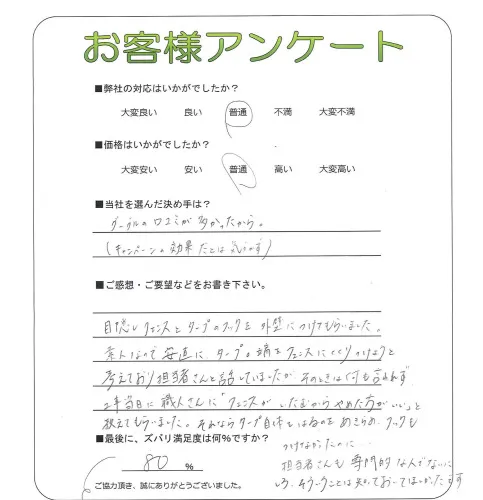 お客様アンケート
■弊社の対応はいかがでしたか?
大変良い 良い 普通 不満 大変不満
■価格はいかがでしたか?
大変安い 安い 普通 高い 大変高い
■当社を選んだ決め手は?
グーグルの口コミが多かったから。
(キャンペーンの効果だとは気づかず)
■ご感想・ご要望などをお書き下さい。
目隠しフェンスとタープのフックを外壁につけてもらいました。
素人なので安直に、タープの端をフェンスにくくりつけようと
考えており担当者さんと話していましたが そのときは何も言われず、
工事当日に職人さんに「フェンスがいたむからやめた方がいい」と
教えてもらいました。それならタープ自体をはるのをあきらめ、フックも
つけなかったのに…
担当者さんも専門的な人でないに
しろ、そういうことは知っておいてほしかったです
■最後に、ズバリ満足度は何%ですか?
80 %
ご協力頂き、誠にありがとうございました。